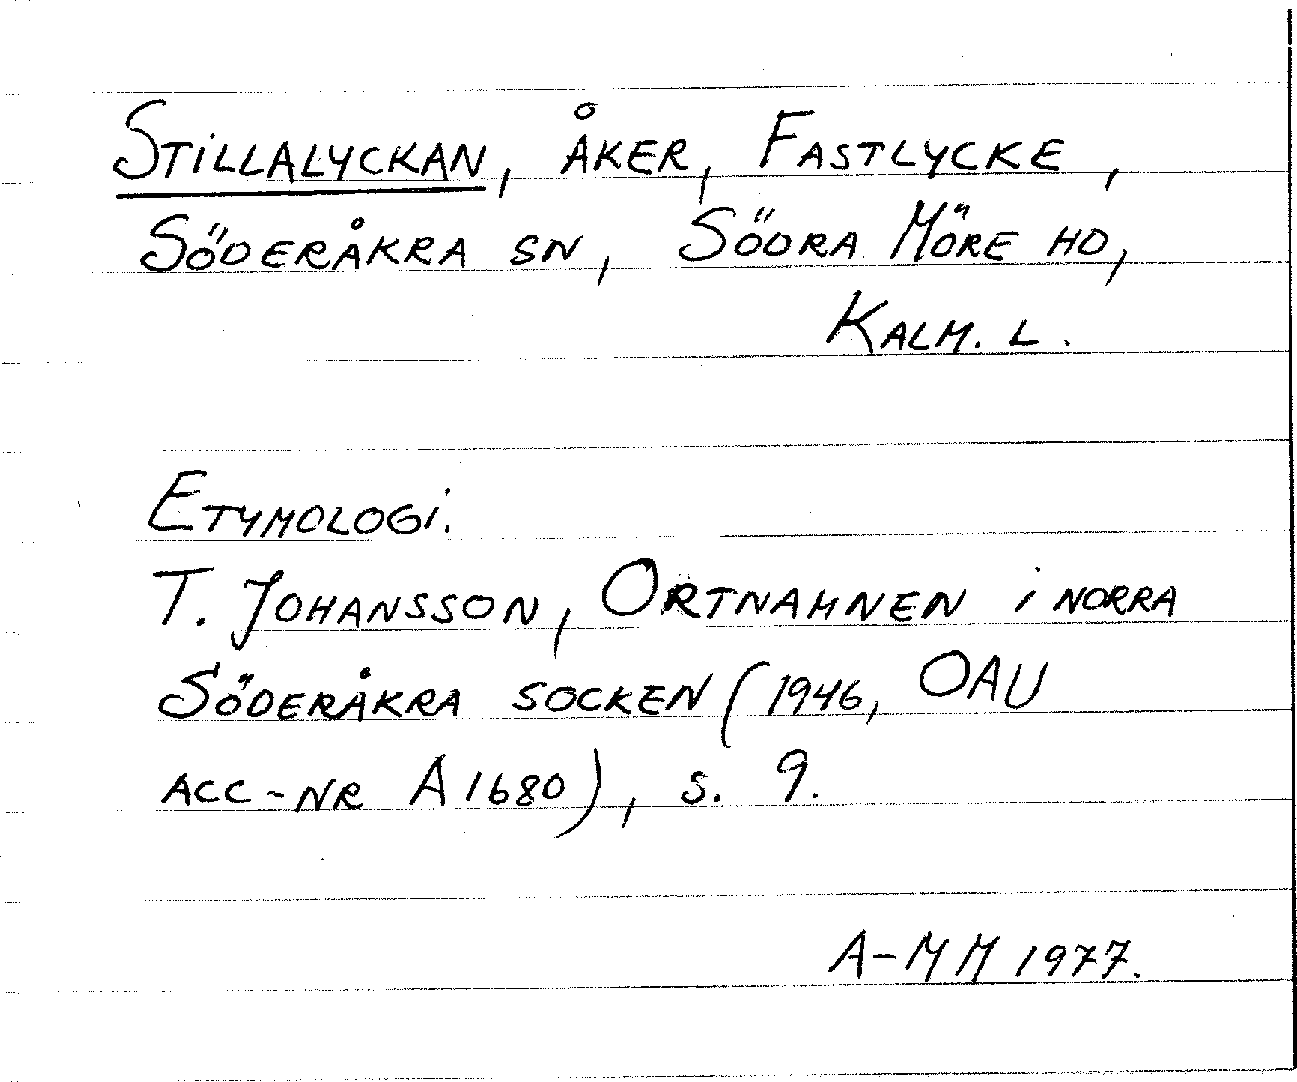 Stillalyckan, åker, Fastlycke,
Söderåkra sn, Södra Möre hd,
Kalm. l.
Etymologi.
T. Johansson, Ortnamnen i norra
Söderåkra socken (1946, OAU
acc-nr A1680), s. 9.
A-MM 1977.